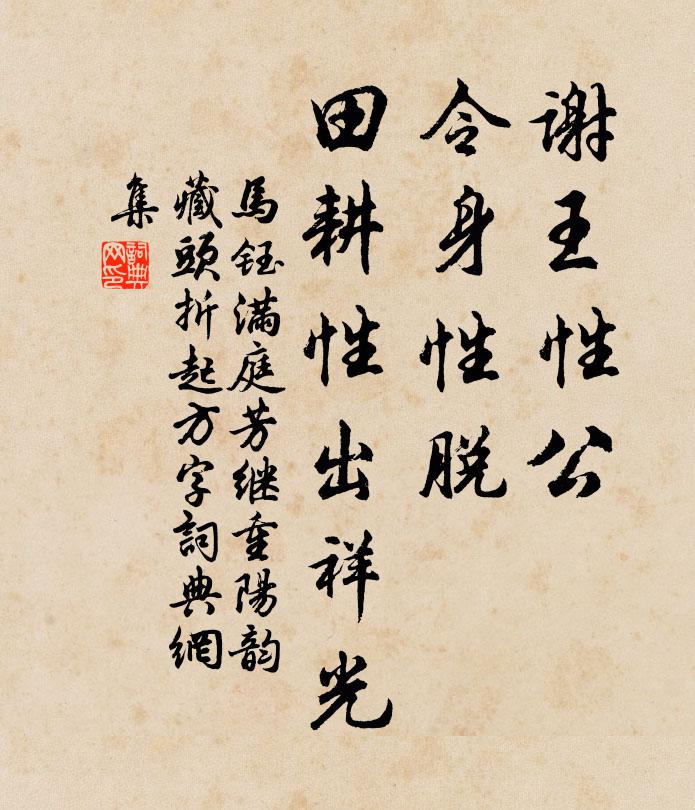 谢王性公
令身性脱
田耕性出祥光
馬鈺滿庭芳继重陽韵
藏頭折起方字詞典網
集
詞典网印